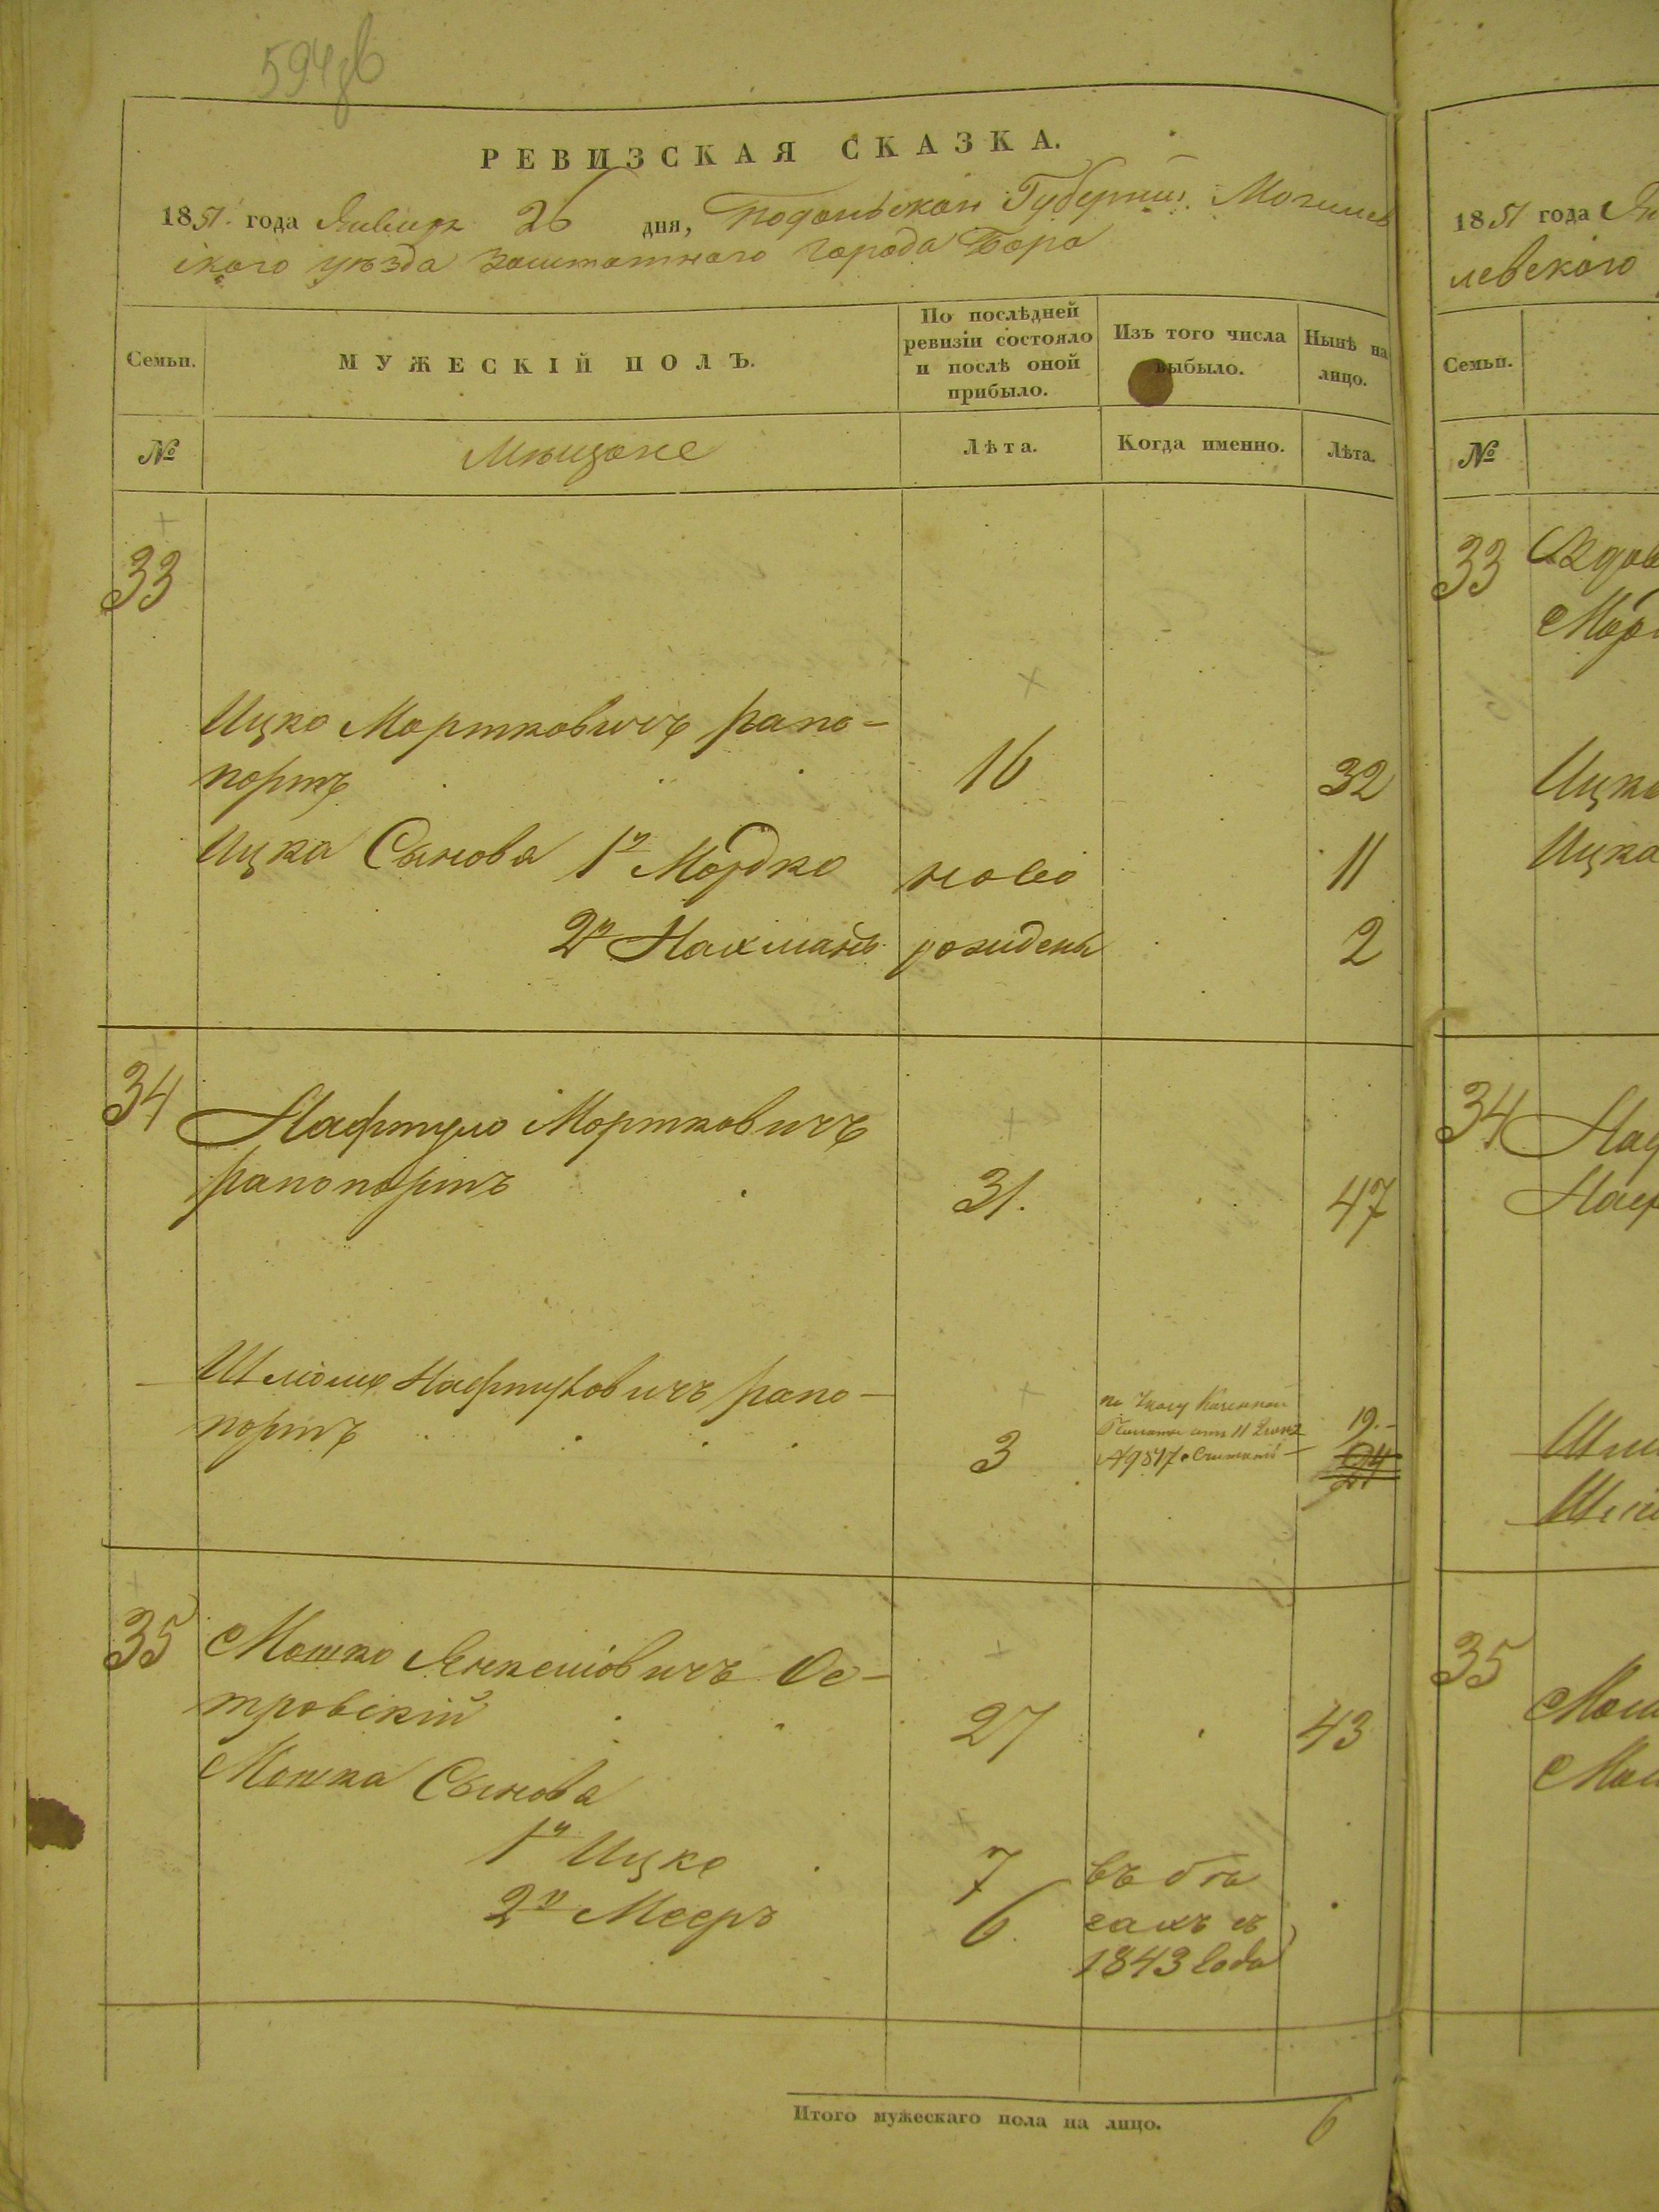 594
РЕВИЗСКАЯ СКАЗКА.
1851. года Января 26 дня, Подольской Губернии Могилев
ского уѣзда заштатного города Бара
Семьи.
МУЖЕСКІЙ ПОЛЪ.
По послѣдней ревизіи состояло и послѣ оной прибыло.
Изъ того числа выбыло.
Нынѣ на лицо.
№
Мѣщане
Лѣта.
Когда именно.
Лѣта.
33
Ицко Мортковичъ рапо-
портъ 16 32
Ицка Сынова 1й Мордко ново 11
2й Нахманъ рожденъ 2
34
Нафтуло Мортковичъ
рапопортъ 31. 47
Шлiома Нафтуловичъ рапо-
портъ 3 19.-
по Указу Казенной
Палаты отъ 11
№ 9817 Считать
35
Мошко Янкелiовичъ Ос-
тровскiй 27 43
Мошка Сынова
1й Ицко 7 въ бѣ
2й Мееръ 6. гахъ съ
1843 года
Итого мужескаго пола на лицо. 6
1851 года
левского
Семьи.
№
33 Вдов
Морт
Ицко
Ицка
34 Наф
Наф
35
Мош
Мош